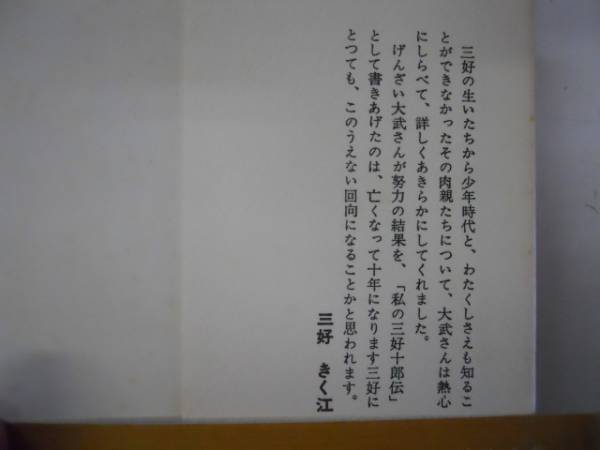 三好の生いたちから少年時代と、わたくしさえも知るこ
とができなかったその肉親たちについて、大武さんは熱心
にしらべて、詳しくあきらかにしてくれました。
げんざい大武さんが努力の結果を、「私の三好十郎伝」
として書きあげたのは、亡くなって十年になります三好に
とつても、このうえない回向になることかと思われます。
三好 きく江